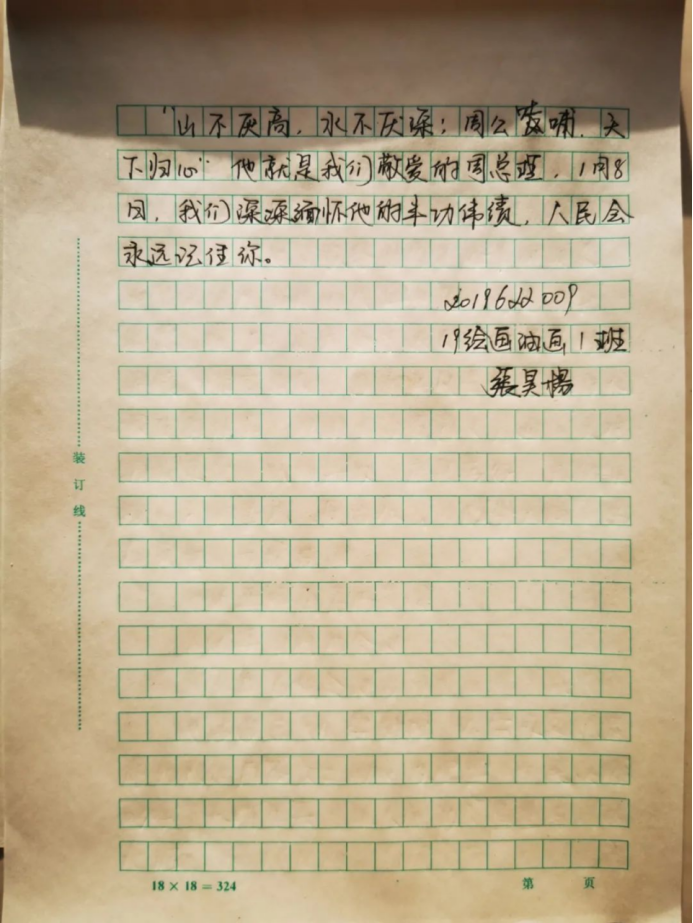 “山不厌高，水不厌深；周公吐哺，天
下归心”他就是我们敬爱的周总理，1月8
日，我们深深缅怀他的丰功伟绩，人民会
永远记住你。
2019622009
19绘画油画1班
张昊旸
装订线
18×18=324
第 页